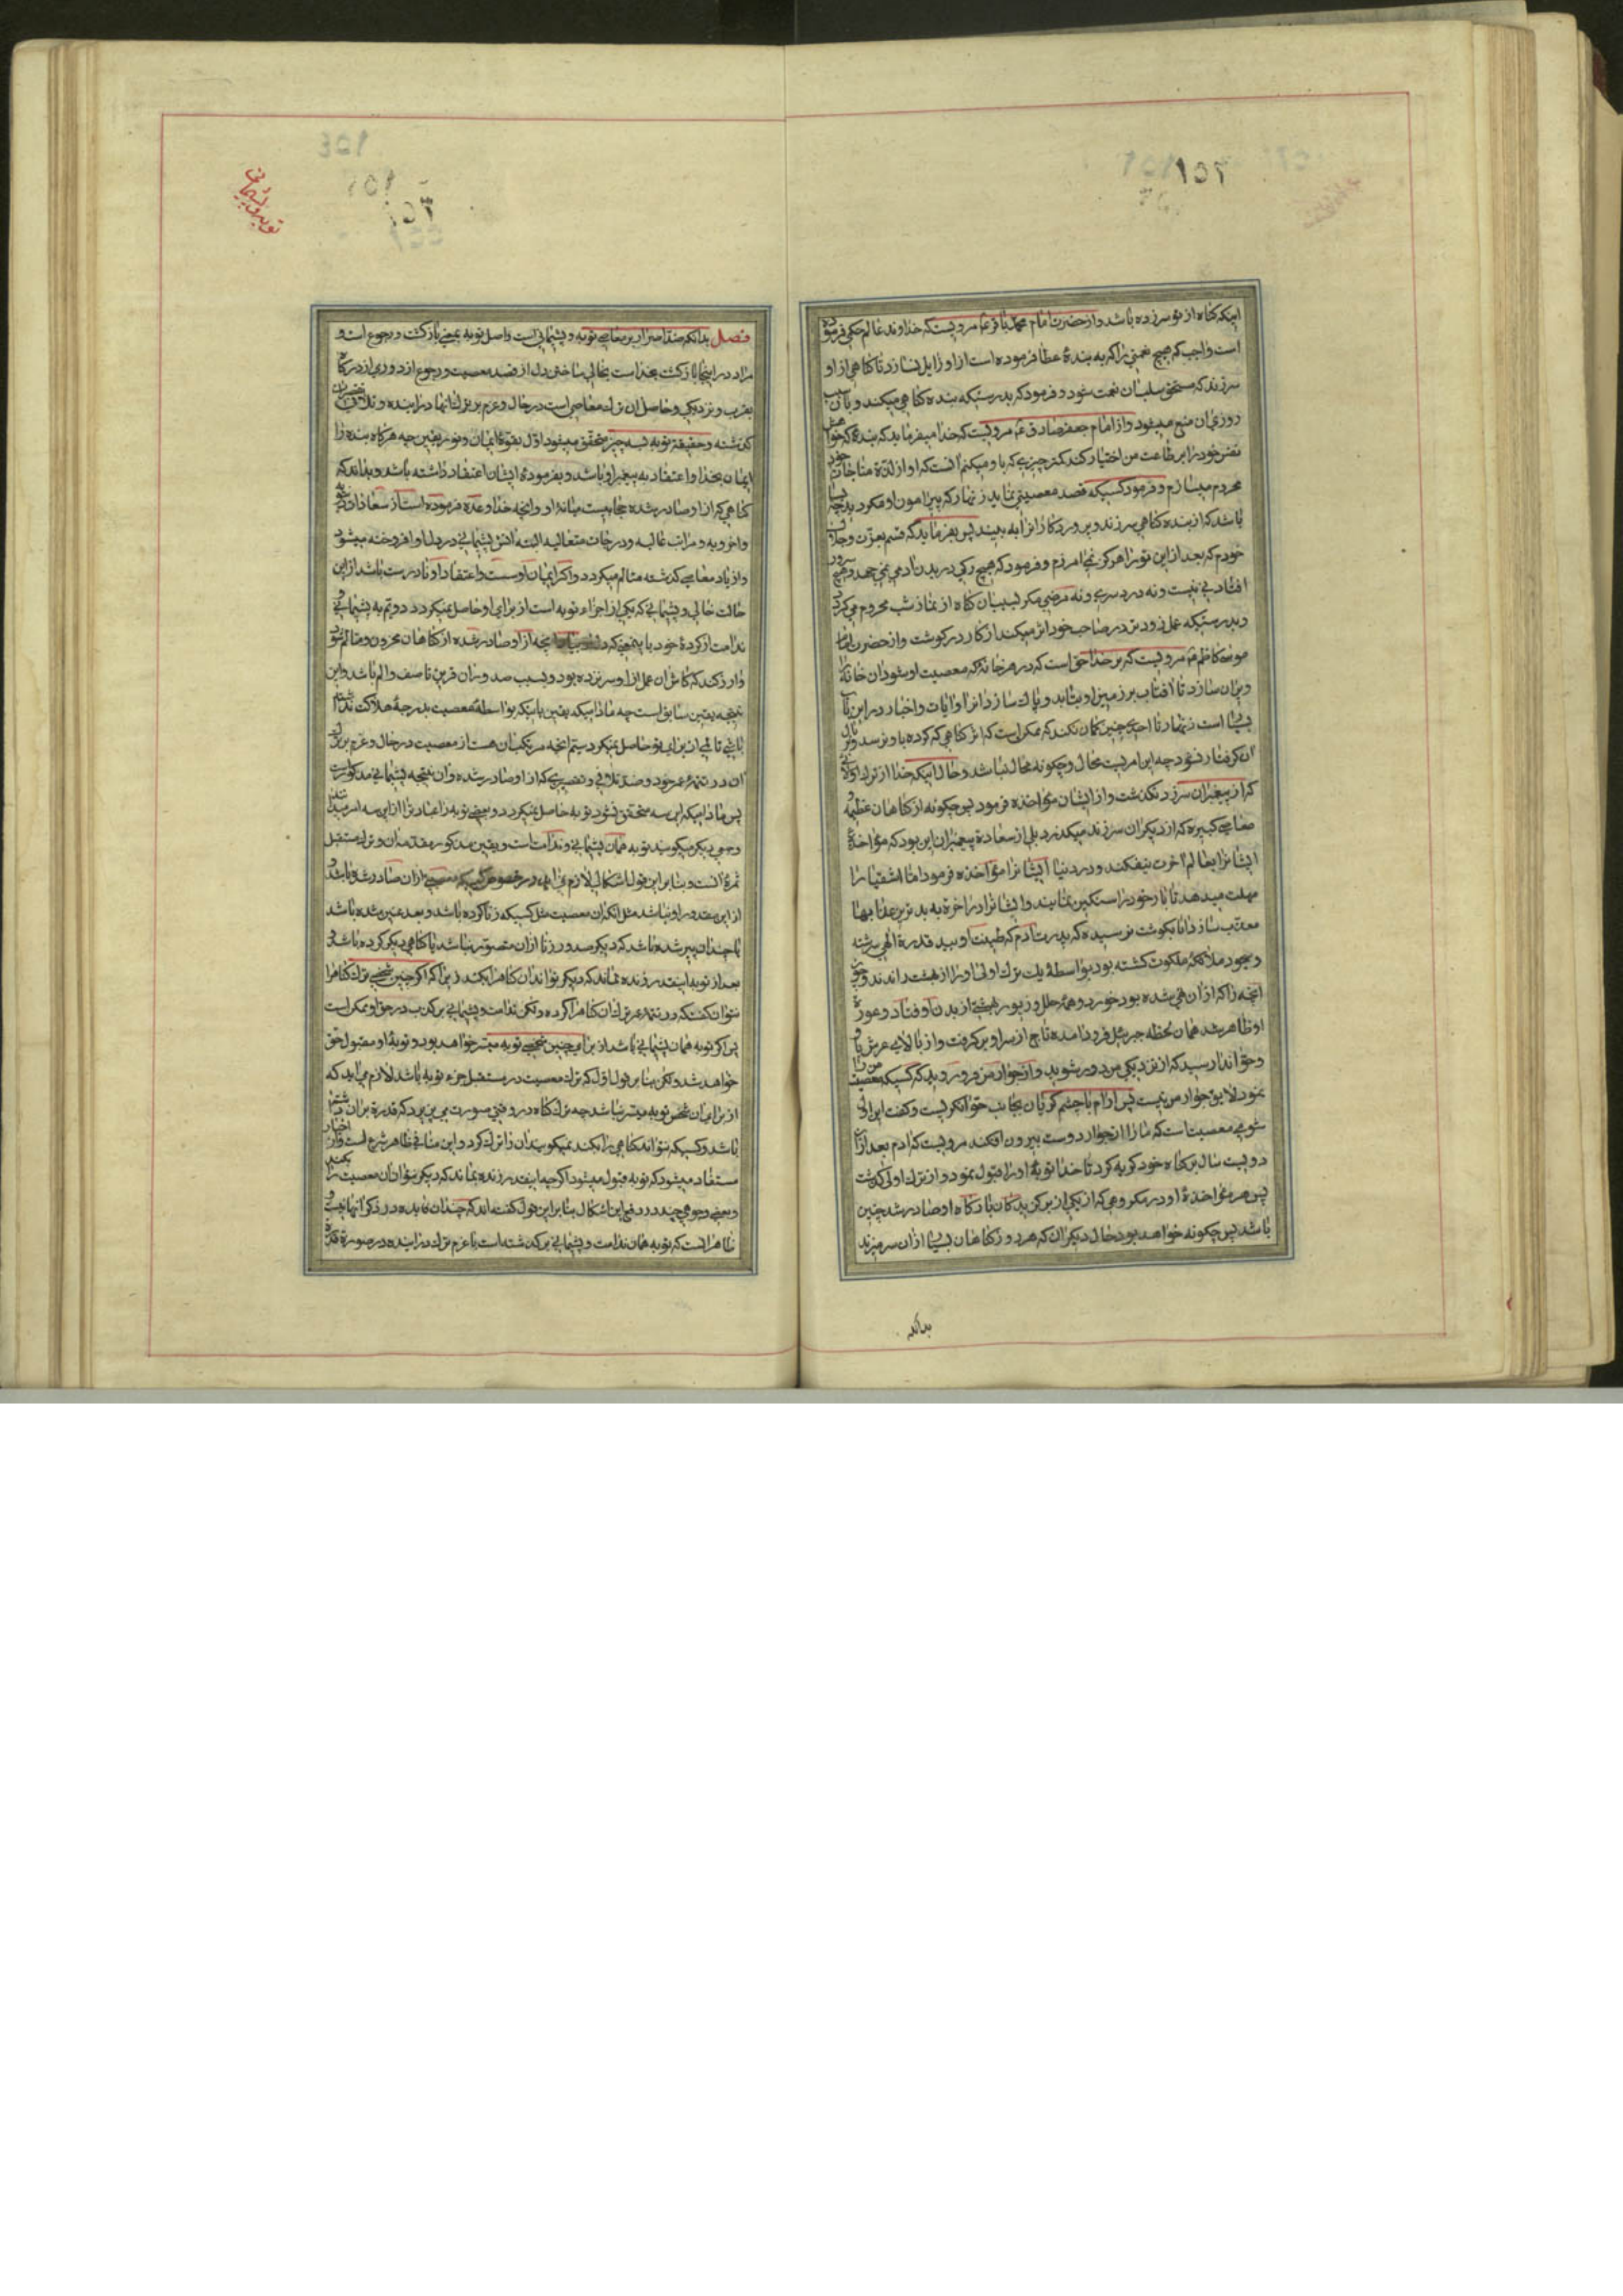 اینکه گناه از تو سرزده باشد و از حضرت امام محمد باقر ع مرویست که خداوند عالم حکم فرموده
است واجب که هیچ نعمتی را که به بندهٔ عطا فرموده است از او زایل نسازد تا گناهی از او
سرزند که مستحق سلب آن نعمت شود و فرمود که بدرستیکه بنده گناهی میکند و بآن سبب
روزی از آن منع میشود و از امام جعفر صادق ع مرویست که خدا میفرماید که بندهٔ که خواهش
نفس خود را بر طاعت من اختیار کند کمتر چیزی که باو میکنم آنست که او را از لذة مناجات خود
محروم میسازم و فرمود کسیکه قصد معصیتی نماید زنهار که پیرامون او مگردد چه بسا
باشد که از بنده گناهی سرزند و پروردگار او را به بیند پس بفرماید که قسم بعزت و جلال
خودم که بعد از این تو را هرگز نمی آمرزم و فرمود که هیچ رگی در بدن آدمی نمی جهد و هیچ
افتادنی نیست و نه درد سری و نه مرضی مگر بسبب آن گناه از نماز شب محروم می گردد
و بدرستیکه عمل بد زودتر در صاحب خود اثر میکند از کارد در گوشت و از حضرت امام
موسی کاظم ع مرویست که بر خدا حق است که در هر خانهٔ که معصیت او شود آن خانه را
ویران سازد تا آفتاب بر زمین او بتابد و پاک سازد آنرا و آیات و اخبار در این باب
بسیار است زنهار تا احدی چنین گمان نکند که ممکن است که اثر گناهی که کرده باو نرسد و بوبال
آن گرفتار نشود چه این امریست محال و چگونه محال نباشد و حال آنکه خدا از ترک اولائی
که از پیغمبران سرزد نگذشت و از ایشان مؤاخذه فرمود پس چگونه از گناهان عظیمه و
معاصی کبیره که از دیگران سرزند میگذرد بلی از سعادة پیغمبران این بود که مؤاخذهٔ
ایشانرا بعالم آخرت نیفکند و در دنیا ایشانرا مؤاخذه فرمود اما اشقیا را
مهلت میدهد تا بار خود را سنگین نمایند و ایشانرا در آخرة به بدترین عذابها
معذب سازد آیا بگوشت نرسیده که پدرت آدم که طینت او بید قدرة الهی سرشته
و مسجود ملائکه ملکوت گشته بود بواسطهٔ یک ترک اولی او را از بهشت راندند و چون
آنچه را که از آن نهی شده بود خورد همهٔ حلل و زیور بهشتی از بدن او فتاد و عورة
او ظاهر شد همان لحظه جبرئیل فرود آمده تاج از سر او بر گرفت و از بالای عرش باو
و حوا ندا رسید که از نزدیکی من دور شوید و از جوار من فرو روید که کسیکه معصیت من را
نمود لایق جوار من نیست پس آدم با چشم گریان بجانب حوا نگریست و گفت این اول
شومی معصیت است که ما را از جوار دوست بیرون افکند مرویست که آدم بعد از آن
دویست سال بر گناه خود گریه کرد تا خدا توبهٔ او را قبول نمود و از ترک اولی گذشت
پس هر مؤاخذهٔ او در مکروهی که از یکی از برگزیدگان بارگاه او صادر شد چنین
باشد پس چگونه خواهد بود حال دیگران که هر روز گناهان بسیار از آن سر میزند
بدانکه
توبه و پشیمانی
فصل بدانکه ضد اصرار بر معاصی توبه و پشیمانی است و اصل توبه بمعنی بازگشت و رجوع است و
مراد در اینجا بازگشت بخداست بخالی ساختن دل از قصد معصیت و رجوع از دوری از درگاه
بقرب و نزدیکی و حاصل آن ترک معاصی است در حال و عزم بر ترک آنها در آینده و تلافی تقصیرات
گذشته و حقیقة توبه بسه چیز متحقق میشود اول بقوة ایمان و نور یقین چه هرگاه بنده را
ایمان بخدا و اعتقاد به پیغمبر او باشد و بفرمودهٔ ایشان اعتقاد داشته باشد و بداند که
گناهی که از او صادر شده حجابیست میانهٔ او و آنچه خدا وعده فرموده است از سعادات دنیویه
و اخرویه و مراتب عالیه و درجات متعالیه البته آتش پشیمانی در دل او افروخته میشود
و از یاد معاصی گذشته متألم میگردد و اگر ایمان او سست و اعتقاد او نادرست باشد از این
حالت خالی و پشیمانی که یکی از اجزاء توبه است از برای او حاصل نمیگردد دویم به پشیمانی و
ندامت از کردهٔ خود باینمعنی که دلش بسبب آنچه از او صادر شده از گناهان محزون و متألم شود
و آرزو کند که کاش آن عمل از او سرنزده بود و بسبب صدور آن قرین تأسف و الم باشد و این
نتیجه یقین سابق است چه مادامیکه یقین باینکه بواسطهٔ معصیت بدرجهٔ هلاکت نداشته
باشی تألمی از برای تو حاصل نمیگردد سیم آنچه مرتکب آن هست از معصیت در حال و عزم بر ترک
آن در تتمهٔ عمر خود و قصد تلافی و تقصیری که از او صادر شده و آن نتیجه پشیمانی مذکور است
پس مادامیکه این سه متحقق نشود توبه حاصل نمیگردد و بعضی توبه را عبارت از این سه امر میدانند
و جمعی دیگر میگویند توبه همان پشیمانی و ندامت است و یقین مذکور مقدمه آن و ترک مستقبل
ثمرهٔ آنست و بنا بر این قول اشکالی لازم نمی آید در خصوص کسیکه معصیتی از آن صادر شده باشد و
از این مقدور او نباشد مثل آنکه آن معصیت مثل کسیکه زنا کرده باشد و بعد عنین شده باشد
یا چندان پیر شده باشد که دیگر صدور زنا از آن متصور نباشد یا گناهی دیگر کرده باشد و
بعد از توبه اینقدر زنده نماند که دیگر تواند آن گناه را بکند زیرا که اگر چنین شخصی ترک گناه را
نتوان گفت که در تتمهٔ عمر ترک آن گناه را کرده ولکن ندامت و پشیمانی بر گذشته در حق او ممکن است
پس اگر توبه همان پشیمانی باشد از برای چنین شخصی توبه میسر خواهد بود و توبهٔ او مقبول حق
خواهد شد ولکن بنا بر قول اول که ترک معصیت در مستقبل جزء توبه باشد لازم می آید که
از برای آن شخص توبه میسر نباشد چه ترک گناه در وقتی صورت می پذیرد که قدرة بر آن داشته
باشد و کسیکه نتواند گناهی را بکند نمیگویند آن را ترک کرد و این منافی ظاهر شرع است و از اخبار
مستفاد میشود که توبه قبول میشود اگر چه اینقدر زنده نماند که دیگر نتوان آن معصیت را بکند
و بعضی وجوهی چند در دفع این اشکال بنا بر این قول گفته اند که چندان فایده در ذکر آنها نیست و
ظاهر آنست که توبه همان ندامت و پشیمانی بر گذشته است با عزم ترک در آینده در صورة قدرة